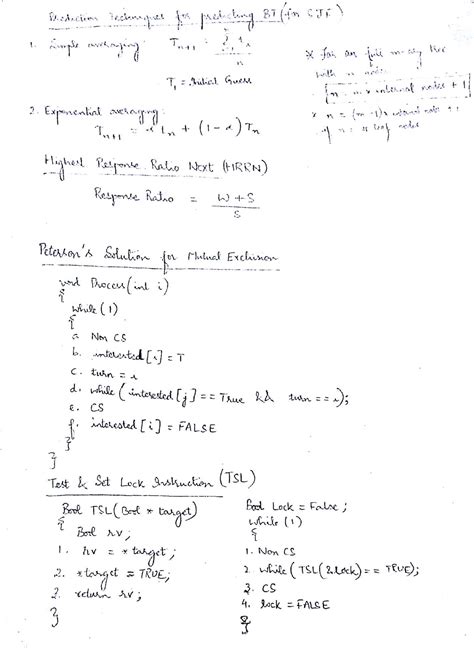 Prediction Techniques for predicting BT (for SJF)
1. Simple averaging: T_n+1 = Σ t_i / n
i=1
T_1 = Initial Guess
* for an full m-ary tree
with n nodes
n = m × internal nodes + 1
* n = (m-1) × internal nodes + 1
if n = # leaf nodes
2. Exponential averaging:
T_n+1 = α t_n + (1-α) T_n
Highest Response Ratio Next (HRRN)
Response Ratio = W+S / S
Peterson's Solution for Mutual Exclusion
void Process(int i)
{
while (1)
{
a. Non CS
b. interested[i] = T
c. turn = i
d. while (interested[j] == True && turn == i);
e. CS
f. interested[i] = FALSE
}
}
Test & Set Lock Instruction (TSL)
Bool TSL(Bool * target)
{
Bool rv;
1. rv = *target;
2. *target = TRUE;
2. return rv;
}
Bool Lock = False;
while (1)
{
1. Non CS
2. while (TSL(&lock) == TRUE);
3. CS
4. lock = FALSE
}